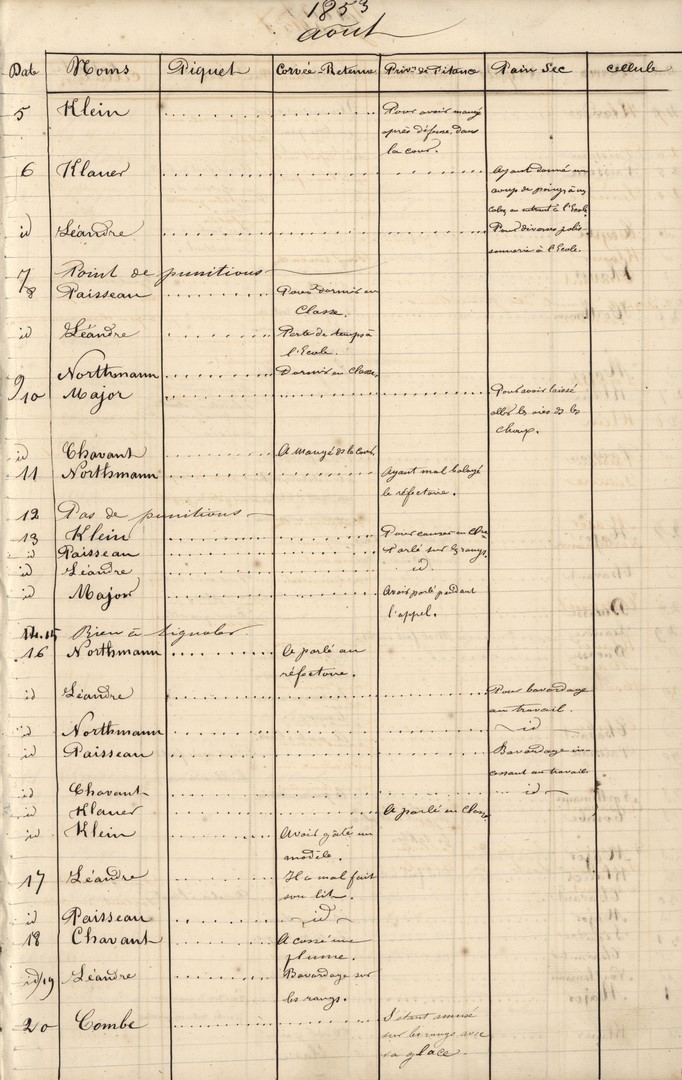 1853
août
Date Noms Piquet Corvée-Retenue Privon de Pitance Pain Sec cellule
5 Klein Pour avoir mangé
après défense, dans
la cour.
6 Klauer Ayant donné un
coup de poing à un
en entrant à l'Ecole.
id Léandre Pour diverses polis-
sonnerie à l'Ecole.
7 Point de punitions
8 Paisseau Pour dormir en
Classe.
id Léandre Perte de temps à
l'Ecole.
9 Northmann Dormir en Classe.
10 Major Pour avoir laissé
aller les oies ds les
choux.
id Chavant A mangé ds la cour.
11 Northmann Ayant mal balayé
le réfectoire.
12 Pas de punitions
13 Klein Pour causer en
id Paisseau Parlé sur les rangs.
id Léandre id
id Major Avoir parlé pendant
l'appel.
14.15 Rien à signaler
16 Northmann A parlé au
réfectoire.
id Léandre Pour bavardage
au travail.
id Northmann id
id Paisseau Bavardage in-
cessant au travail.
id Chavant id
id Klauer A parlé en Classe
id Klein Avoir gâté un
modèle.
17 Léandre Il a mal fait
son lit.
id Paisseau id
18 Chavant A cassé une
plume.
id/19 Léandre Bavardage sur
les rangs.
20 Combe S'étant amusé
sur les rangs avec
sa glace.